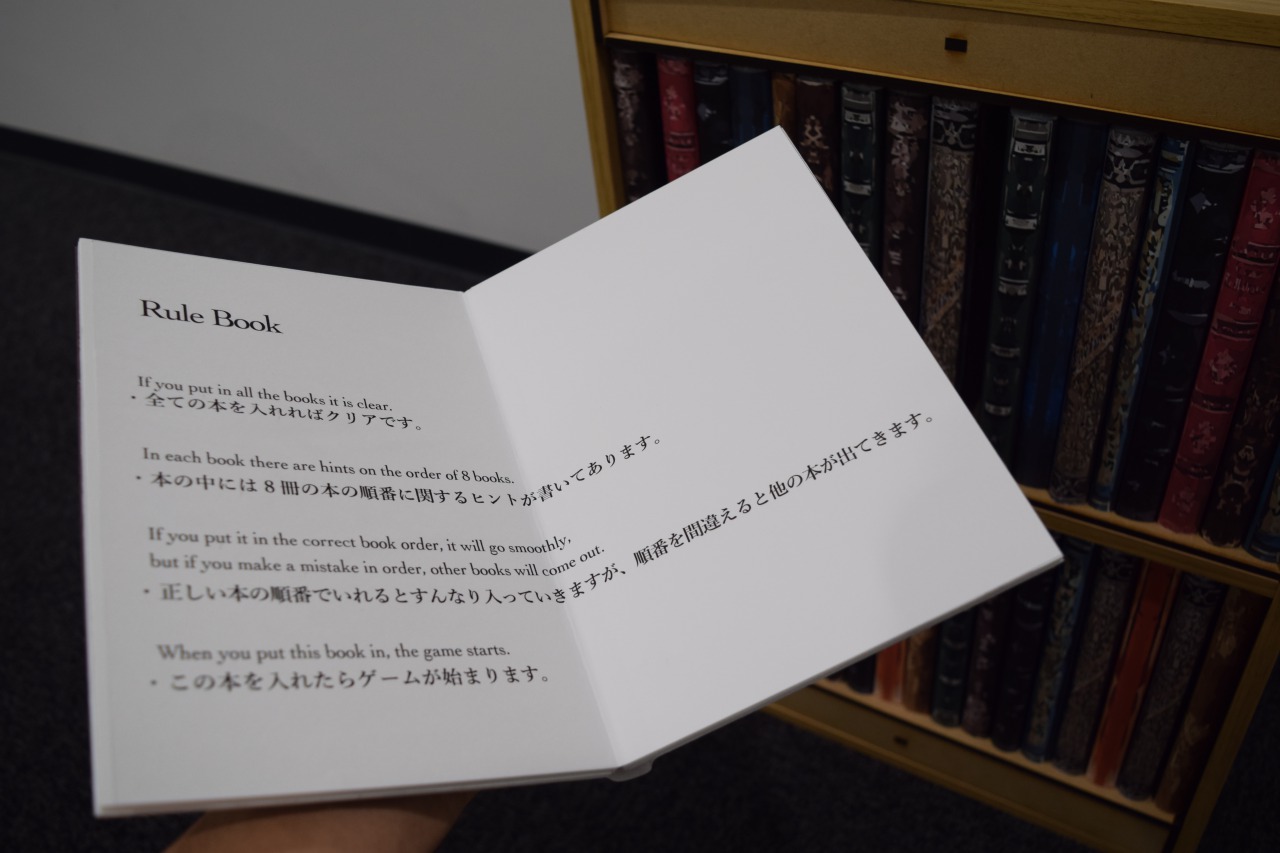 Rule Book
If you put in all the books it is clear.
・全ての本を入れればクリアです。
In each book there are hints on the order of 8 books.
・本の中には8冊の本の順番に関するヒントが書いてあります。
If you put it in the correct book order, it will go smoothly,
but if you make a mistake in order, other books will come out.
・正しい本の順番でいれるとすんなり入っていきますが、順番を間違えると他の本が出てきます。
When you put this book in, the game starts.
・この本を入れたらゲームが始まります。